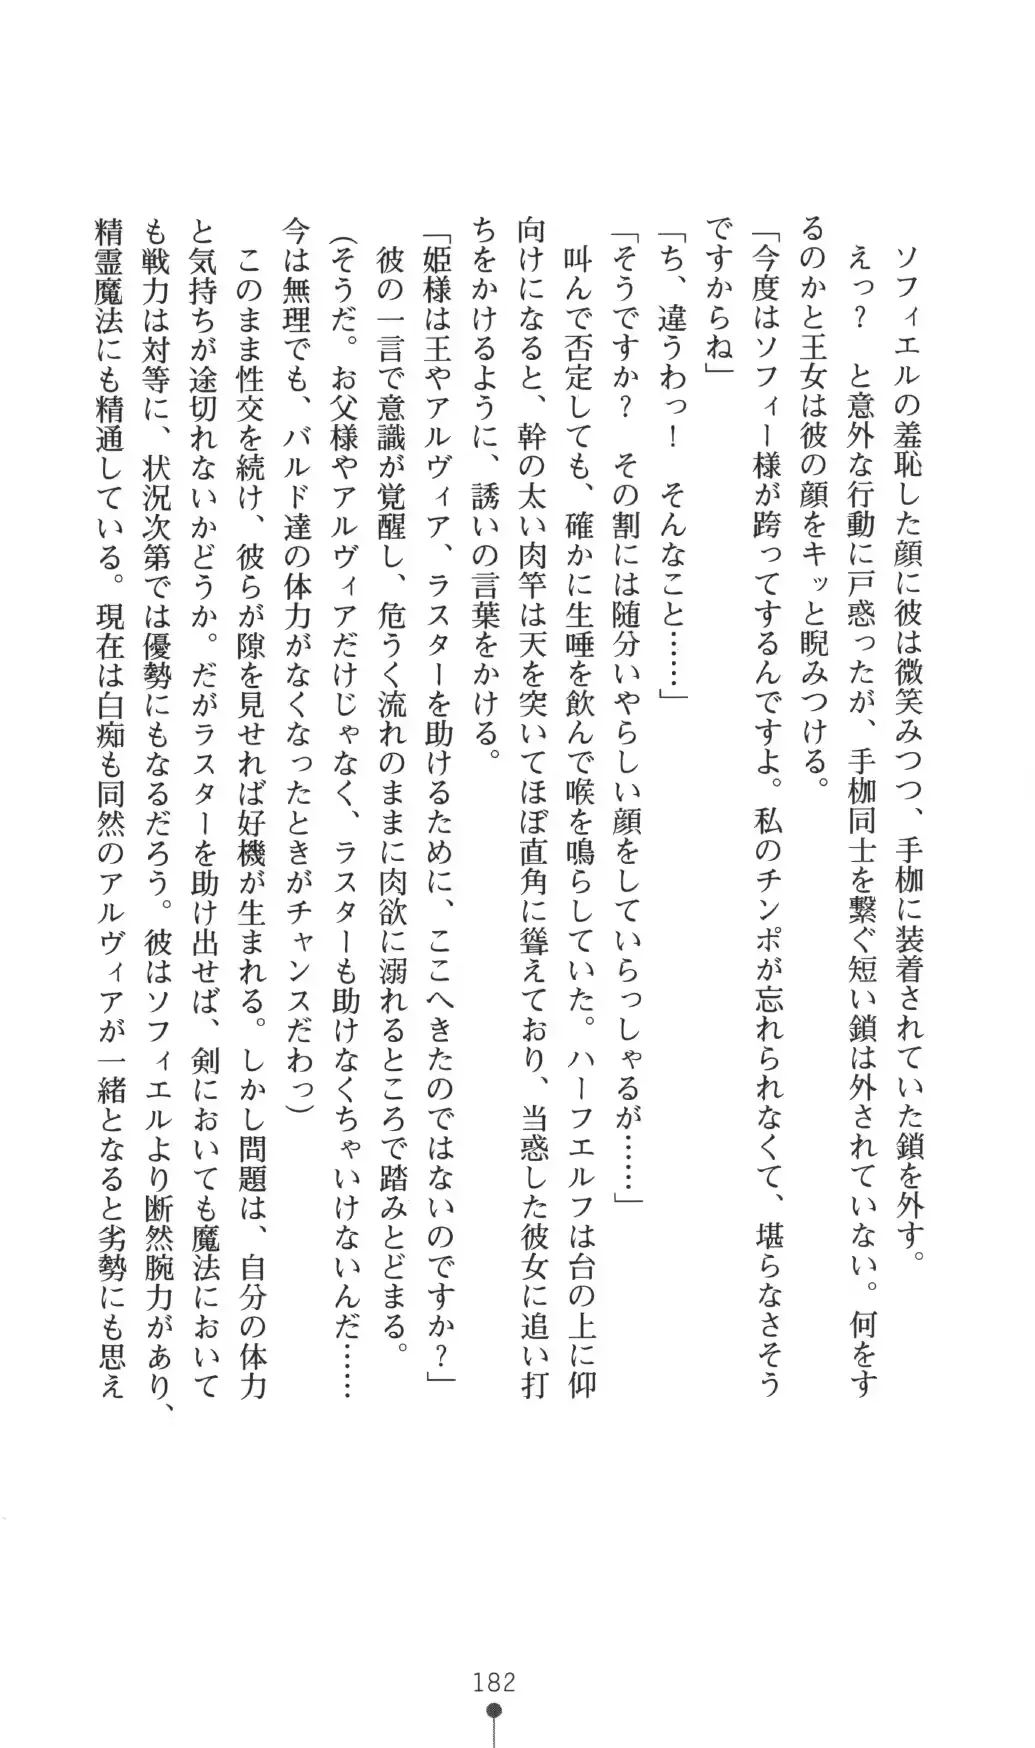 ソフィエルの羞恥した顔に彼は微笑みつつ、手枷に装着されていた鎖を外す。
えっ？　と意外な行動に戸惑ったが、手枷同士を繋ぐ短い鎖は外されていない。何をす
るのかと王女は彼の顔をキッと睨みつける。
「今度はソフィー様が跨ってするんですよ。私のチンポが忘れられなくて、堪らなさそう
ですからね」
「ち、違うわっ！　そんなこと……」
「そうですか？　その割には随分いやらしい顔をしていらっしゃるが……」
叫んで否定しても、確かに生唾を飲んで喉を鳴らしていた。ハーフエルフは台の上に仰
向けになると、幹の太い肉竿は天を突いてほぼ直角に聳えており、当惑した彼女に追い打
ちをかけるように、誘いの言葉をかける。
「姫様は王やアルヴィア、ラスターを助けるために、ここへきたのではないのですか？」
彼の一言で意識が覚醒し、危うく流れのままに肉欲に溺れるところで踏みとどまる。
（そうだ。お父様やアルヴィアだけじゃなく、ラスターも助けなくちゃいけないんだ……
今は無理でも、バルド達の体力がなくなったときがチャンスだわっ）
このまま性交を続け、彼らが隙を見せれば好機が生まれる。しかし問題は、自分の体力
と気持ちが途切れないかどうか。だがラスターを助け出せば、剣においても魔法において
も戦力は対等に、状況次第では優勢にもなるだろう。彼はソフィエルより断然腕力があり、
精霊魔法にも精通している。現在は白痴も同然のアルヴィアが一緒となると劣勢にも思え
182